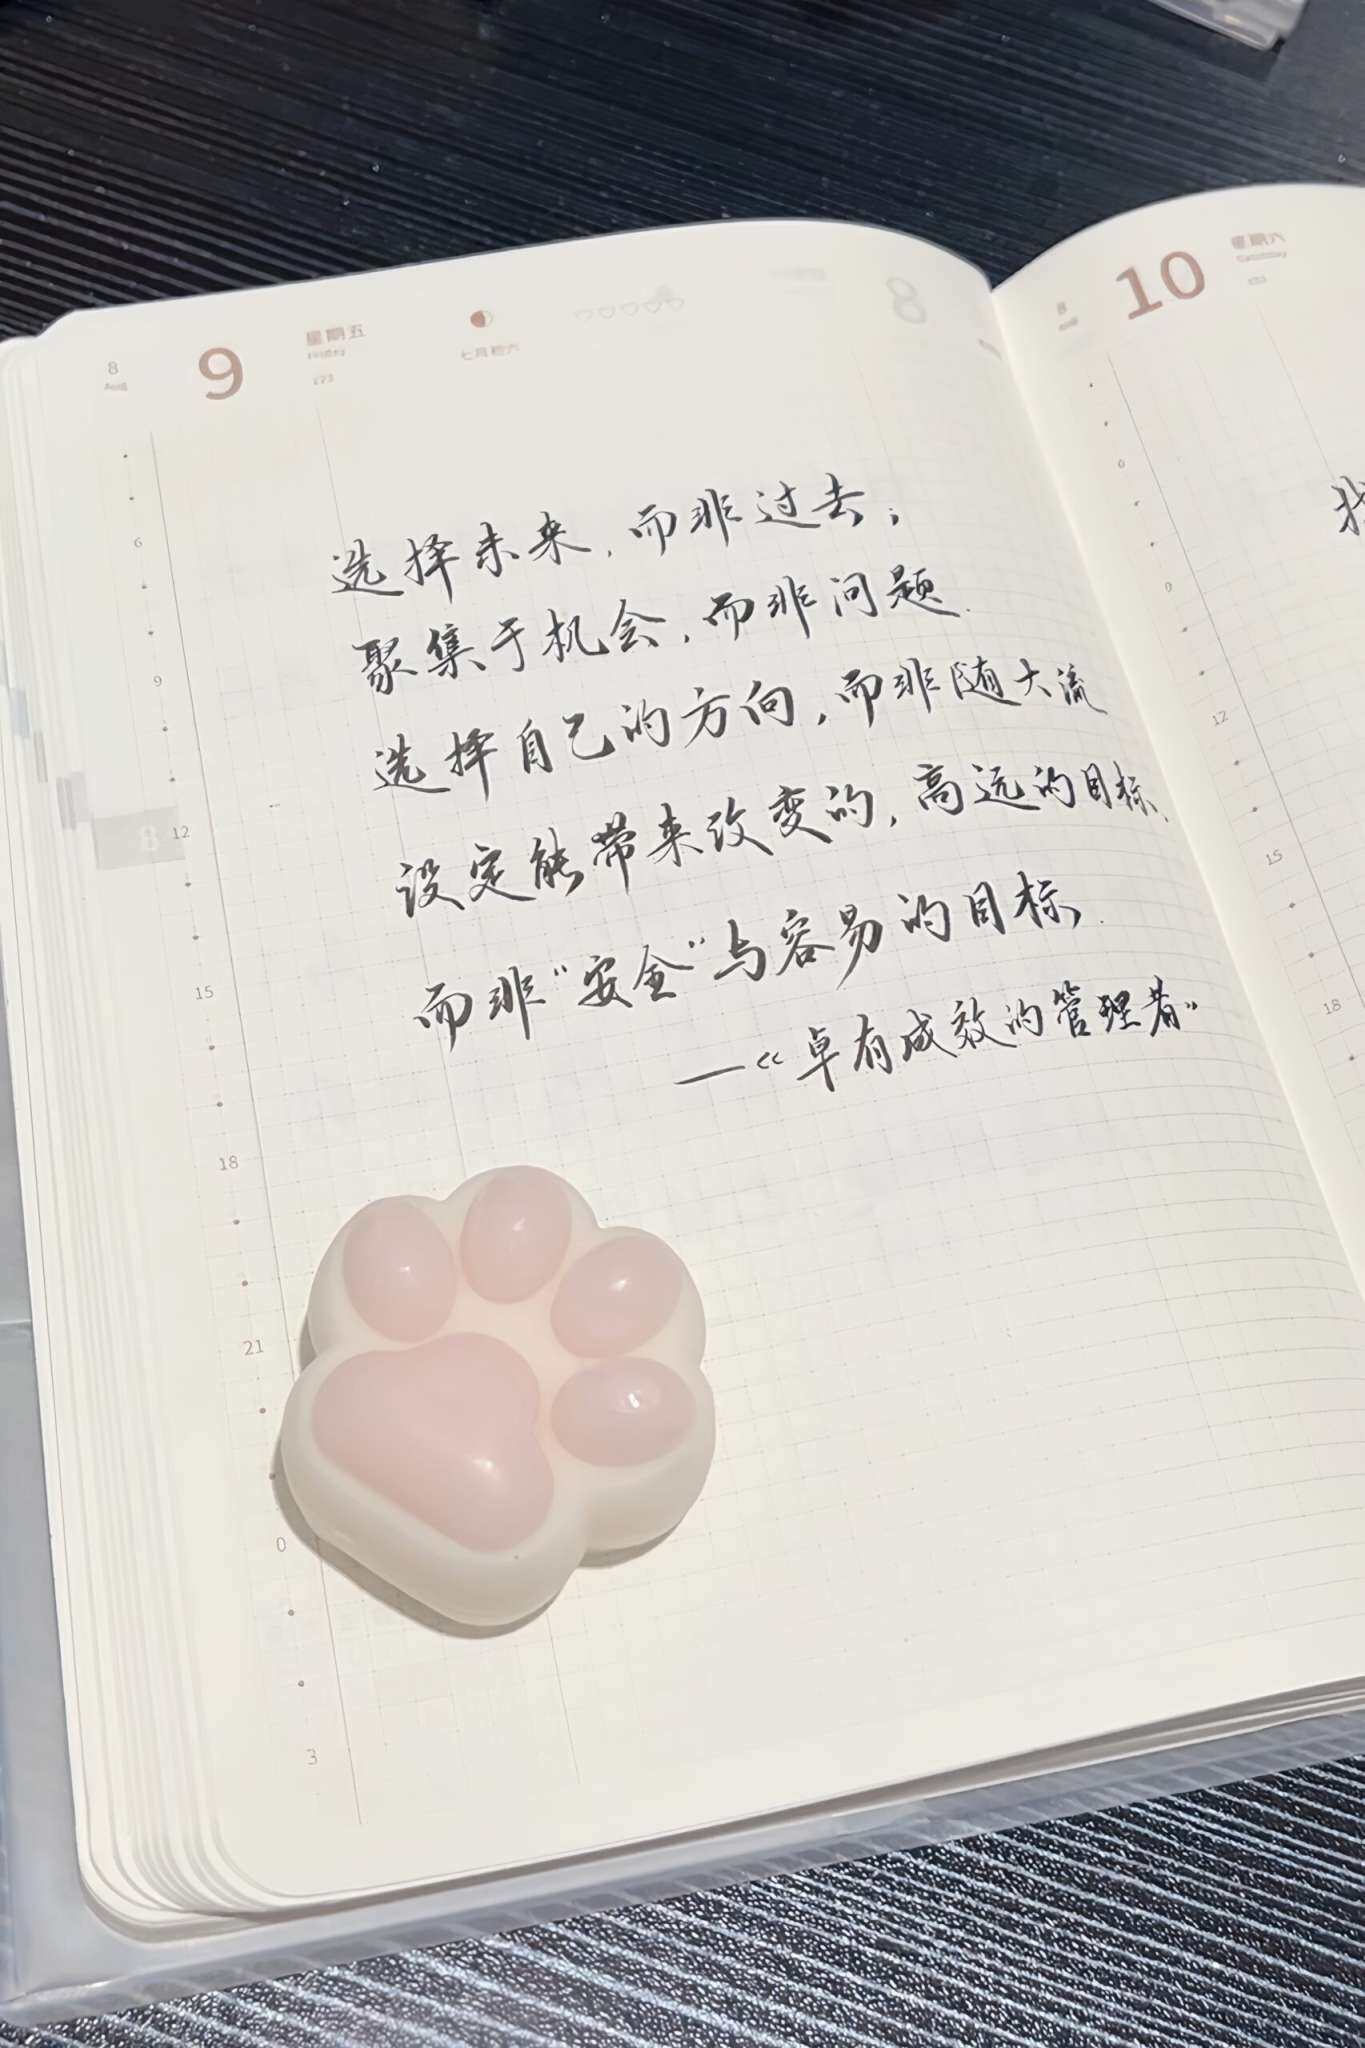 8
Aug
9
星期五
Friday
七月初六
8
8
Aug
10
星期六
Saturday
选择未来，而非过去；
聚集于机会，而非问题.
选择自己的方向，而非随大流
设定能带来改变的，高远的目标、
而非“安全”与容易的目标.
—《卓有成效的管理者》
6
9
8
12
15
18
21
0
3
6
9
12
15
18